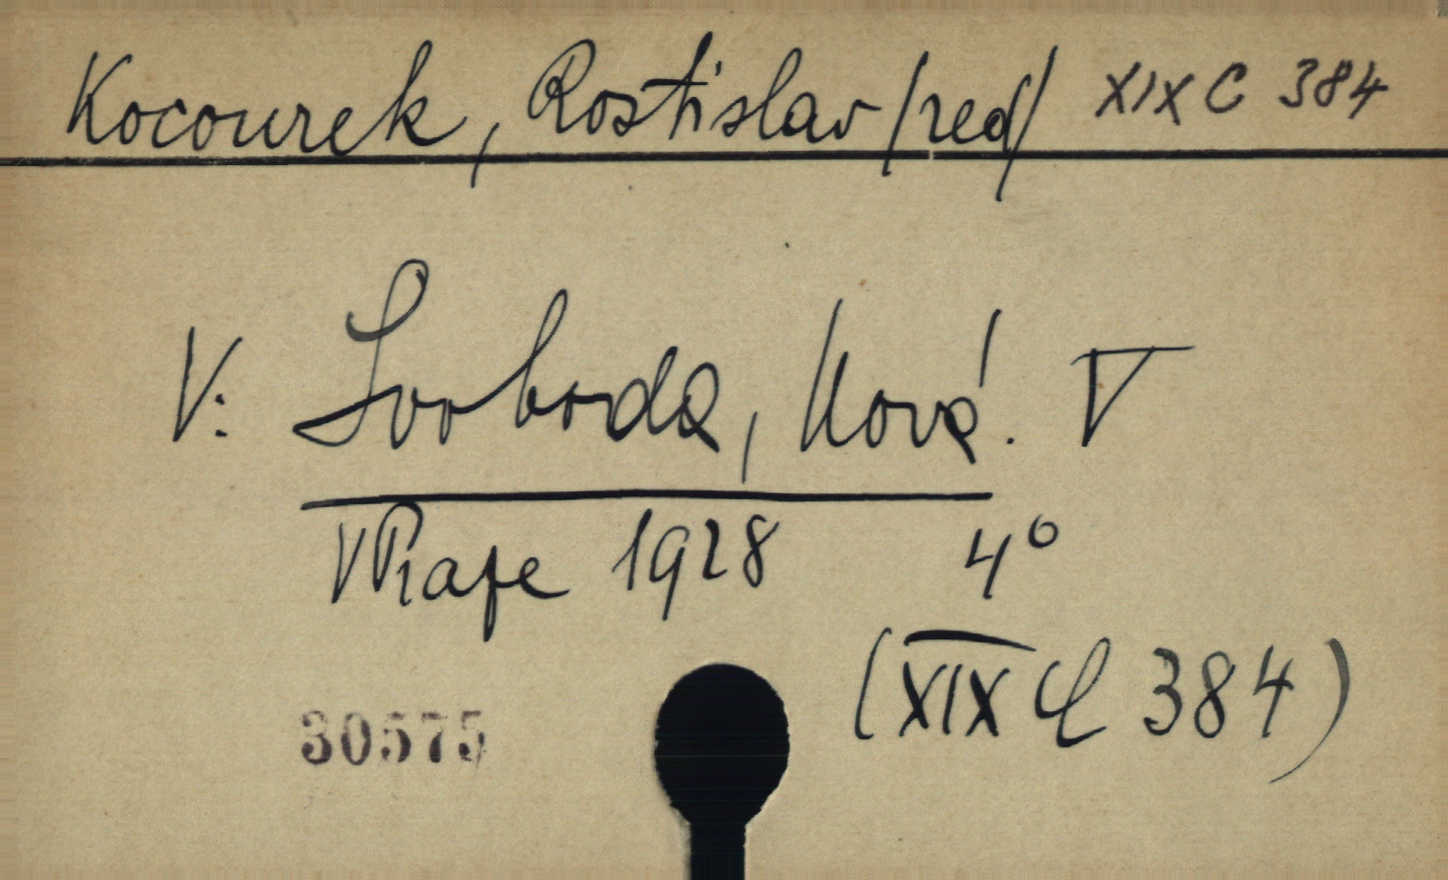 Kocourek, Rostislav /red/ XIX C 384
V: Svoboda, Nová. V
V Praze 1928 4°
(XIX C 384)
30575